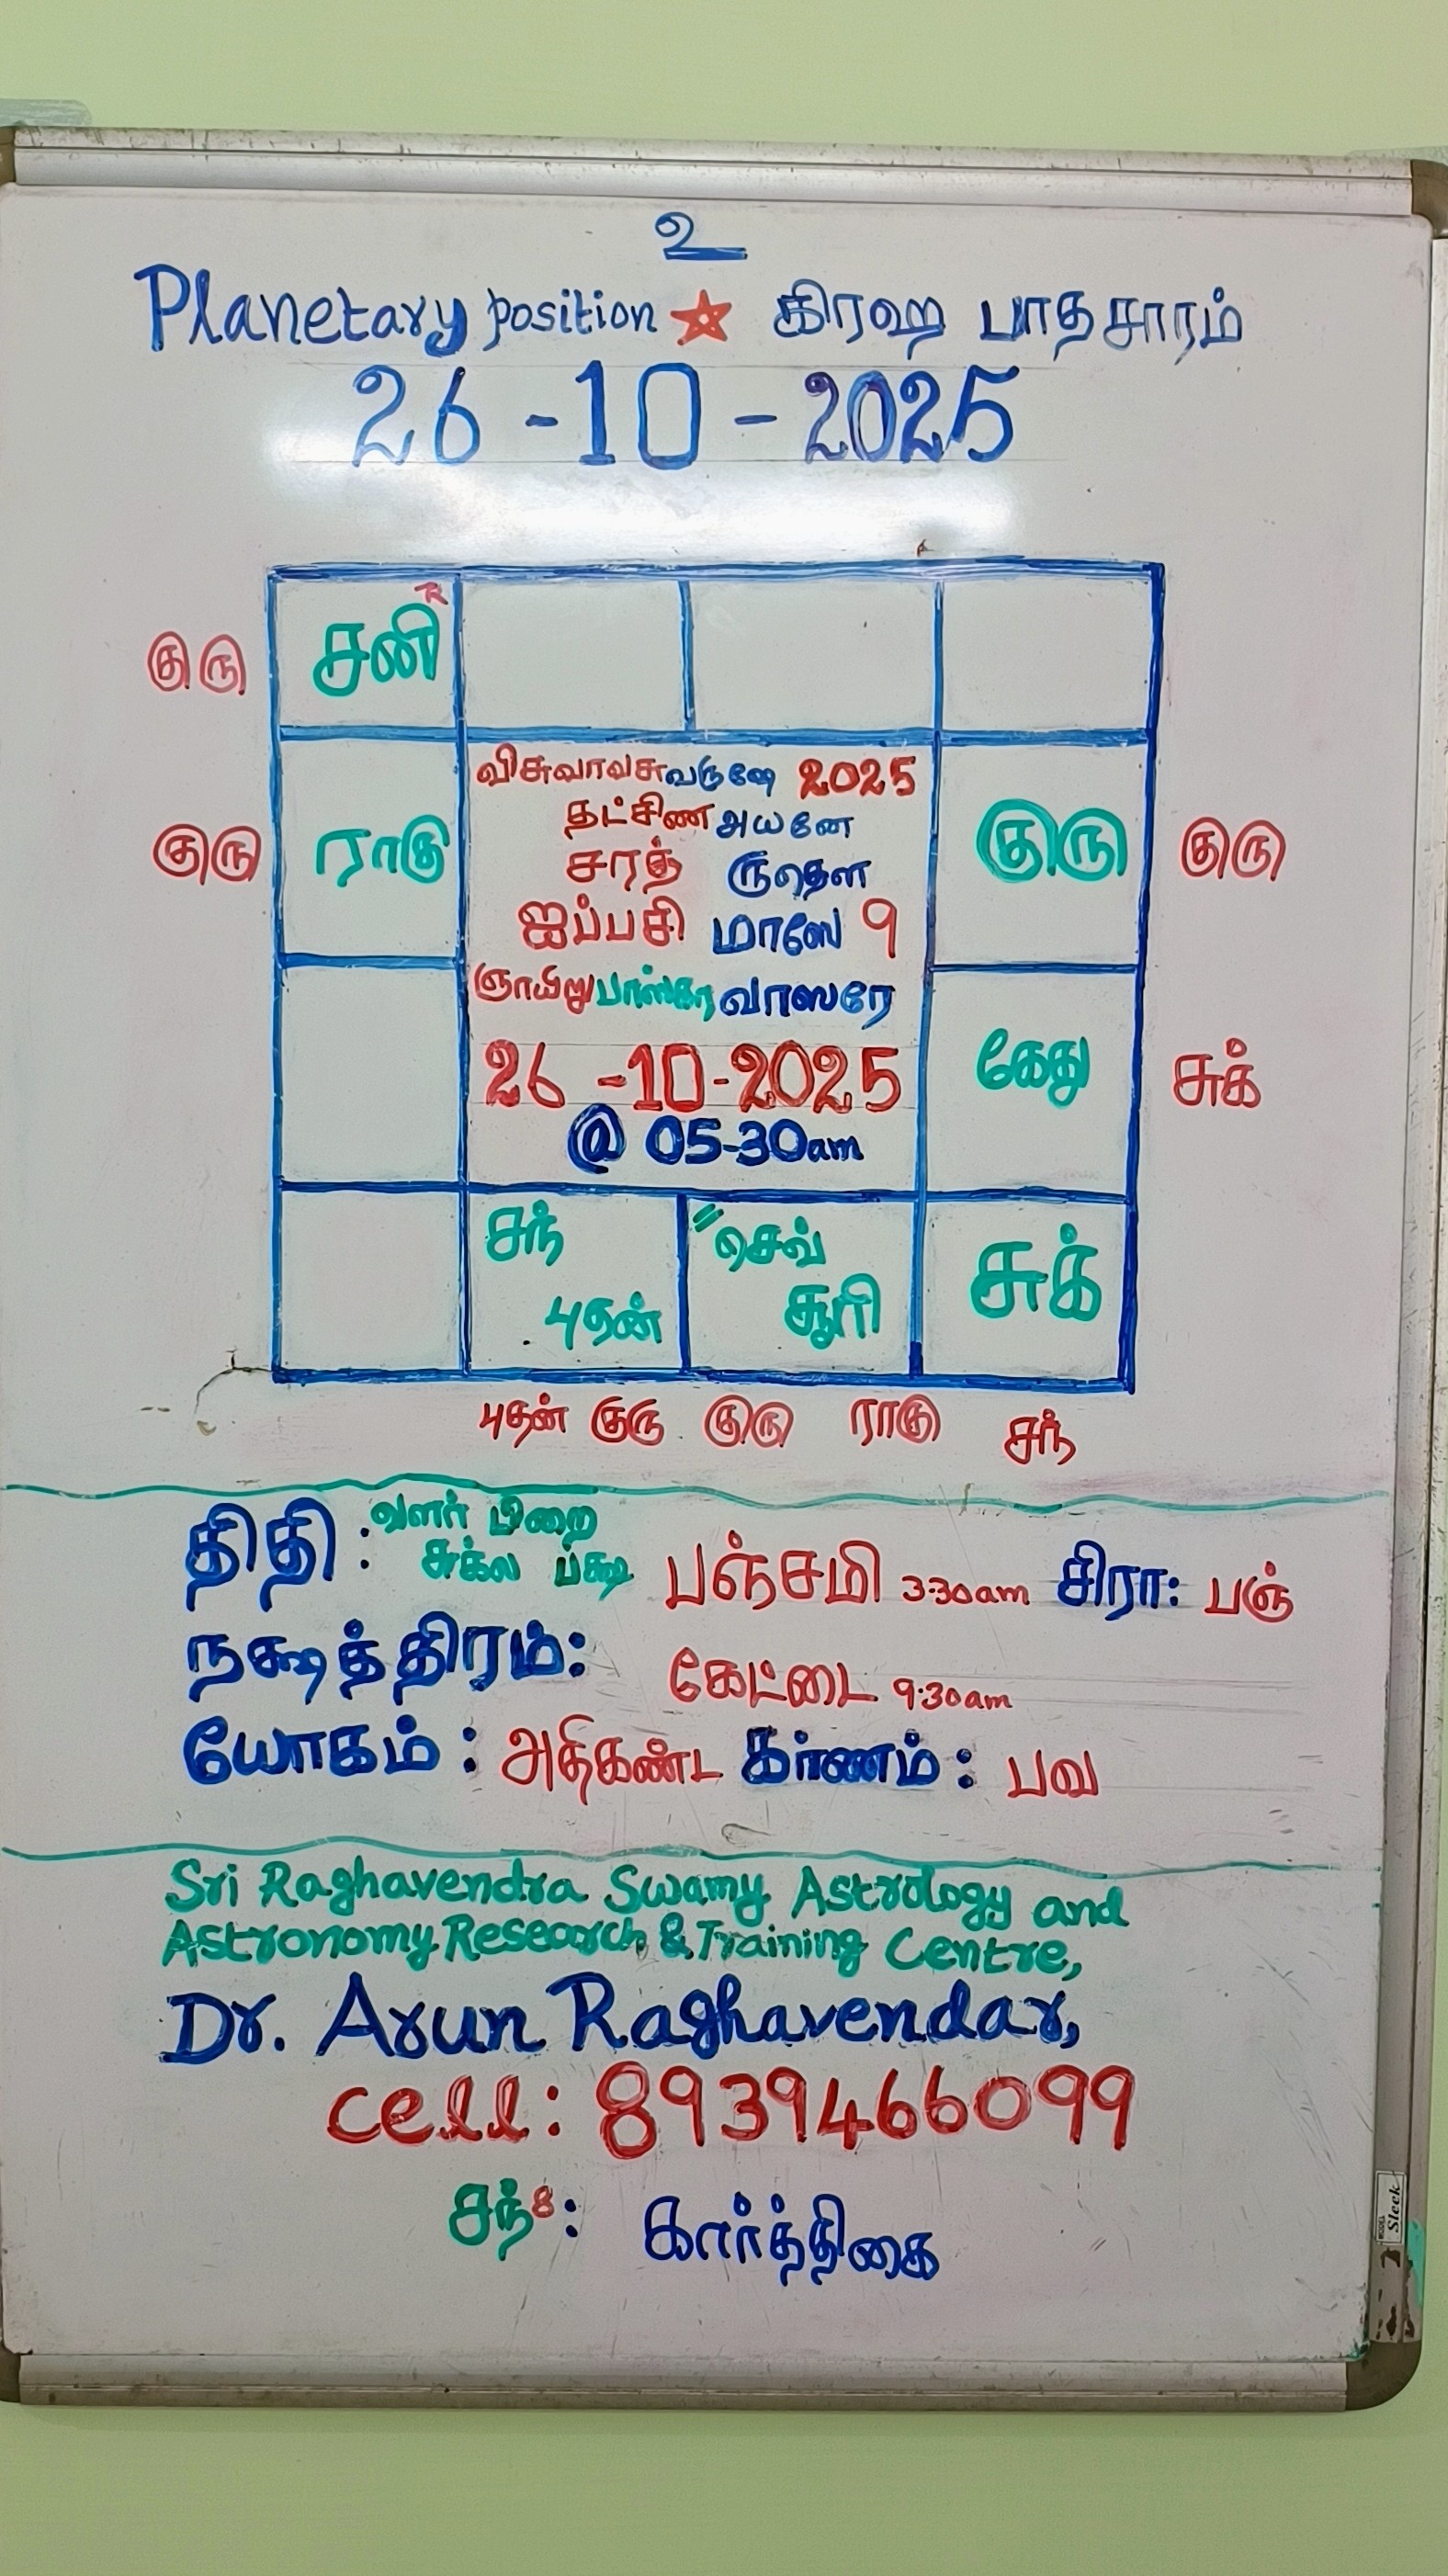 உ
Planetary position ☆ கிரஹ பாதசாரம்
26-10-2025
சனி R
குரு
விசுவாவசு வருஷே 2025
தட்சிண அயனே
குரு ராகு
சரத் ருதௌ
குரு குரு
ஐப்பசி மாஸே 9
ஞாயிறு பாஸ்கர வாஸரே
கேது சுக்
26-10-2025
@ 05-30am
சந் செவ் சுக்
புதன் சூரி
புதன் குரு குரு ராகு சந்
திதி: வளர் பிறை
சுக்ல பக்ஷ பஞ்சமி 3:30am சிரா: பஞ்
நக்ஷத்திரம்: கேட்டை 9:30am
யோகம்: அதிகண்ட கர்ணம்: பவ
Sri Raghavendra Swamy Astrology and
Astronomy Research & Training Centre,
Dr. Arun Raghavendar,
cell: 8939466099
சந்8: கார்த்திகை
MODEL Sleek